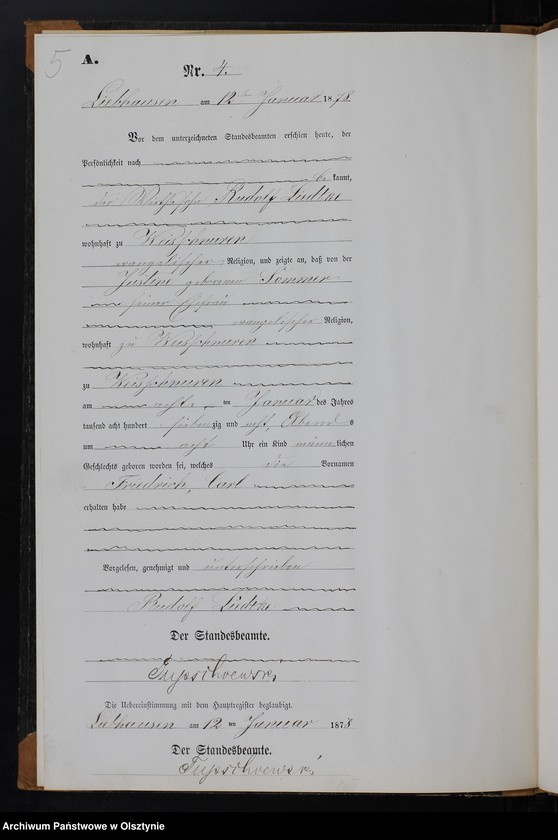 5
A.
Nr. 4.
Liebhausen am 12ten Januar 1878
Vor dem unterzeichneten Standesbeamten erschien heute, der
Persönlichkeit nach
be kannt,
der Rudolf Lüdtke
wohnhaft zu
evangelischer Religion, und zeigte an, daß von der
Justine geborenen Sommer
seiner Ehefrau
evangelischer Religion,
wohnhaft zu
zu
am acht ten Januar des Jahres
tausend acht hundert siebenzig und acht, Abends
um acht Uhr ein Kind männlichen
Geschlechts geboren worden sei, welches die Vornamen
Friedrich, Carl
erhalten habe
Vorgelesen, genehmigt und unterschrieben
Rudolf Lüdtke
Der Standesbeamte.
Die Uebereinstimmung mit dem Hauptregister beglaubigt.
Liebhausen am 12 ten Januar 1878
Der Standesbeamte.
Archiwum Państwowe w Olsztynie